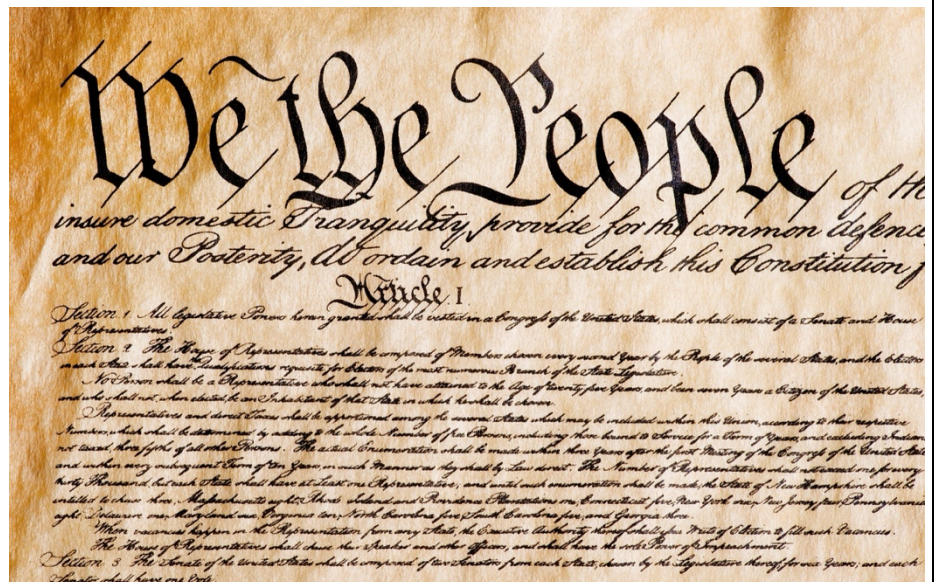 We the People of the
insure domestic Tranquility, provide for the common defence
and our Posterity, do ordain and establish this Constitution f
Article. I.
Section 1. All legislative Powers herein granted shall be vested in a Congress of the United States, which shall consist of a Senate and House
of Representatives.
Section 2. The House of Representatives shall be composed of Members chosen every second Year by the People of the several States, and the Electors
in each State shall have Qualifications requisite for Electors of the most numerous Branch of the State Legislature.
No Person shall be a Representative who shall not have attained to the Age of twenty five Years, and been seven Years a Citizen of the United States,
and who shall not, when elected, be an Inhabitant of that State in which he shall be chosen.
Representatives and direct Taxes shall be apportioned among the several States which may be included within this Union, according to their respective
Numbers, which shall be determined by adding to the whole Number of free Persons, including those bound to Service for a Term of Years, and excluding Indians
not taxed, three fifths of all other Persons. The actual Enumeration shall be made within three Years after the first Meeting of the Congress of the United States
and within every subsequent Term of ten Years, in such Manner as they shall by Law direct. The Number of Representatives shall not exceed one for every
thirty Thousand, but each State shall have at Least one Representative; and until such enumeration shall be made, the State of New Hampshire shall be
entitled to chuse three, Massachusetts eight, Rhode Island and Providence Plantations one, Connecticut five, New York six, New Jersey four, Pennsylvania
eight, Delaware one, Maryland six, Virginia ten, North Carolina five, South Carolina five, and Georgia three.
When vacancies happen in the Representation from any State, the Executive Authority thereof shall issue Writs of Election to fill such Vacancies.
The House of Representatives shall chuse their Speaker and other Officers; and shall have the sole Power of Impeachment.
Section 3. The Senate of the United States shall be composed of two Senators from each State, chosen by the Legislature thereof, for six Years; and each
Senator shall have one Vote.